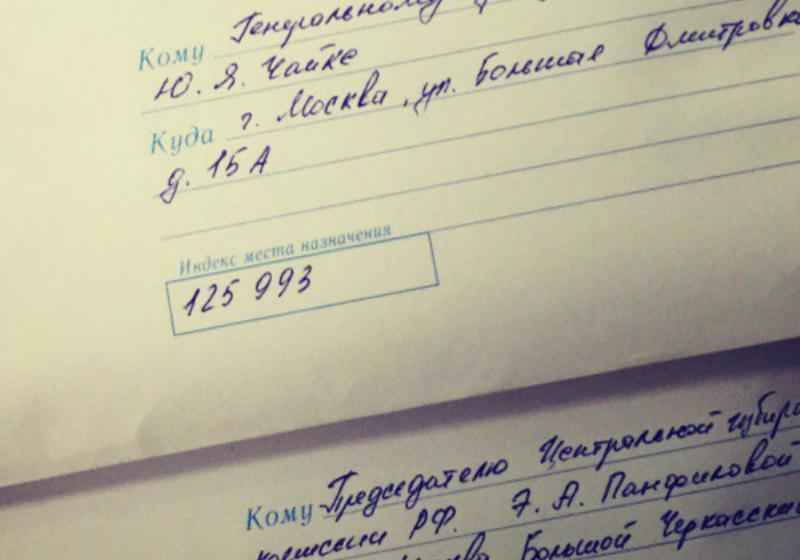 Кому Генеральному
Ю. Я. Чайке
Куда г. Москва, ул. Большая Дмитровка
д. 15 А
Индекс места назначения
125 993
Кому Председателю Центральной избира
комиссии РФ. Э. А. Панфиловой
Большой Черкасский